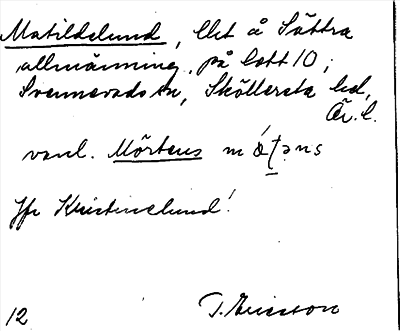 Matildelund, lht å Sättra
allmänning, på lott 10;
Svennevads sn, Sköllersta hd,
Ör. l.
vanl. Mörtens
Jfr Kristinelund!
12 T. Ericsson